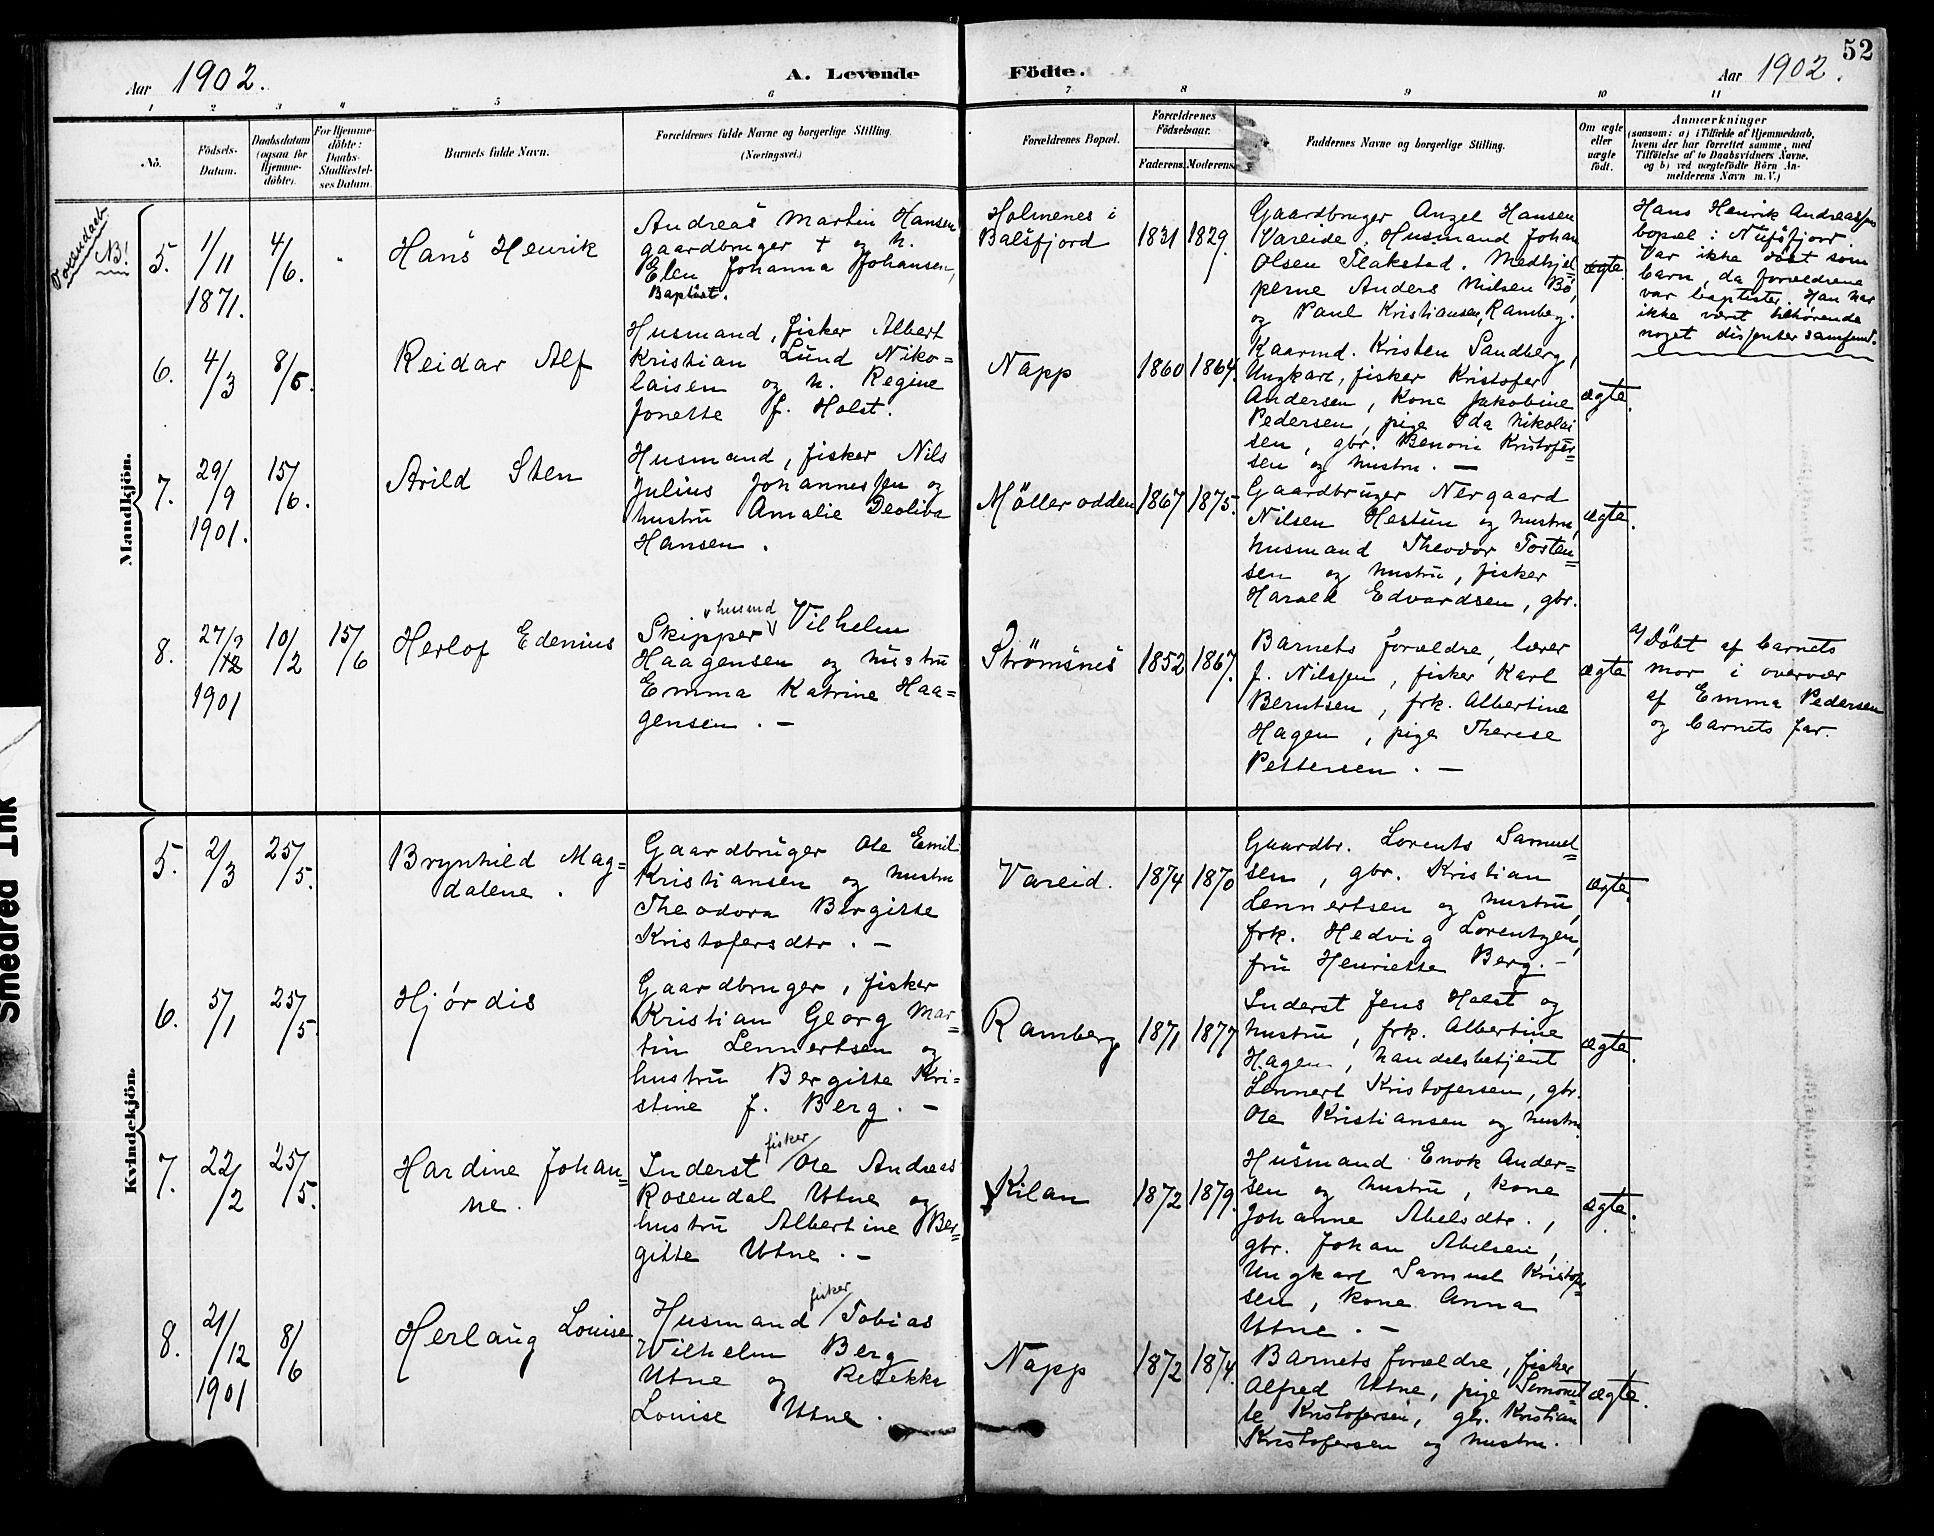 52
Aar 1902.
A. Levende Födte.
Aar 1902.
1 2 3 4 5 6 7 8 9 10 11
No.
Födsels-
Datum.
Daabsdatum
(ogsaa for
Hjemme-
döbte).
For Hjemme-
döbte:
Daabs-
Stadfæstel-
ses Datum.
Barnets fulde Navn.
Forældrenes fulde Navne og borgerlige Stilling.
(Næringsvei.)
Forældrenes Bopæl.
Forældrenes
Födselsaar.
Faderens. Moderens.
Faddernes Navne og borgerlige Stilling.
Om ægte
eller
uægte
födt.
Anmærkninger
(saasom: a) i Tilfælde af Hjemmedaab,
hvem der har forrettet samme, med
Tilföielse af to Daabsvidners Navne,
og b) ved uægtefödte Börn An-
melderens Navn m. V.)
Mandkjön.
Voxendaab.
NB!
5.
1/11
1871.
4/6.
Hans Henrik
Andreas Martin Hansen
gaardbruger + og h.
Elen Johanna Johansen,
Baptist.
Holmenes i
Balsfjord
1831
1829.
Gaardbruger Angel Hansen
Vareide. Husmand Johan
Olsen Flakstad. Medhjel=
perne Anders Nilsen Bö,
og Paul Kristiansen, Ramberg.
ægte.
Hans Henrik Andreassen
bopæl: Nufsfjord.
Var ikke döbt som
barn, da forældrene
var baptister. Han har
ikke været tilhörende
noget dissentersamfund.
6.
4/3
8/6.
Reidar Alf
Husmand, fisker Albert
Kristian Lund Niko=
laisen og h. Regine
Jonette f. Holst.
Napp
1860
1864.
Kaarmd. Kristen Sandberg,
Ungkarl, fisker Kristofer
Andersen, kone Jakobine
Pedersen, pige Ida Nikolai
sen, gbr. Benoni Kristofer=
sen og hustru. —
ægte.
7.
29/9
1901.
15/6.
Arild Sten
Husmand, fisker Nils
Julius Johannessen og
hustru Amalie Deoliva
Hansen.
Möllerodden
1867
1875.
Gaardbruger Nergaard
Nilsen Hestun og hustru,
husmand Theodor Torten=
sen og hustru, fisker
Harald Edvardsen, gbr.
ægte.
8.
27/12
1901
10/2
15/6
Herlof Edenius
husmd
Skipper Vilhelm
Haagensen og hustru
Emma Katrine Haa=
gensen. —
Strömsnes
1852
1867.
Barnets forældre, lærer
J. Nilssen, fisker Karl
Berntsen, frk. Albertine
Hagen, pige Therese
Pettersen. —
ægte
a/ Döbt af barnets
mor i overvær
af Emma Pedersen
og barnets far.
Kvindekjön.
5.
2/3
25/5.
Brynhild Mag=
dalene.
Gaardbruger Ole Emil
Kristiansen og hustru
Theodora Bergitte
Kristofersdtr. —
Vareid.
1874
1870
Gaardbr. Lorents Samuel=
sen, gbr. Kristian
Lennertsen og hustru,
frk. Hedvig Lorentzen,
fru Henriette Berg. —
ægte.
6.
5/1
25/5.
Hjördis
Gaardbruger, fisker
Kristian Georg Mar=
tin Lennertsen og
hustru Bergitte Kri=
stine f. Berg. —
Ramberg
1871
1877
Inderst Jens Holst og
hustru, frk. Albertine
Hagen, handelsbetjent
Lennert Kristofersen, gbr.
Ole Kristiansen og hustru.
ægte.
7.
22/2
25/5.
Hardine Johan=
ne.
fisker
Inderst Ole Andreas
Rosendal Utne og
hustru Albertine Ber=
gitte Utne. —
Kilan
1872
1879.
Husmand Enok Ander=
sen og hustru, kone
Johanne Abelsdtr.,
gbr. Johan Abelsen,
Ungkarl Samuel Kristofer
sen, kone Anna
Utne. —
ægte.
8.
21/12
1901
8/6
Herlaug Louise
fisker
Husmand Tobias
Wilhelm Berg
Utne og Rebekka
Louise Utne.
Napp
1872
1874.
Barnets forældre, fisker
Alfred Utne, pige Simonet
te Kristofersen, gbr. Kristian
Kristofersen og hustru.
ægte.
Smedred Ink